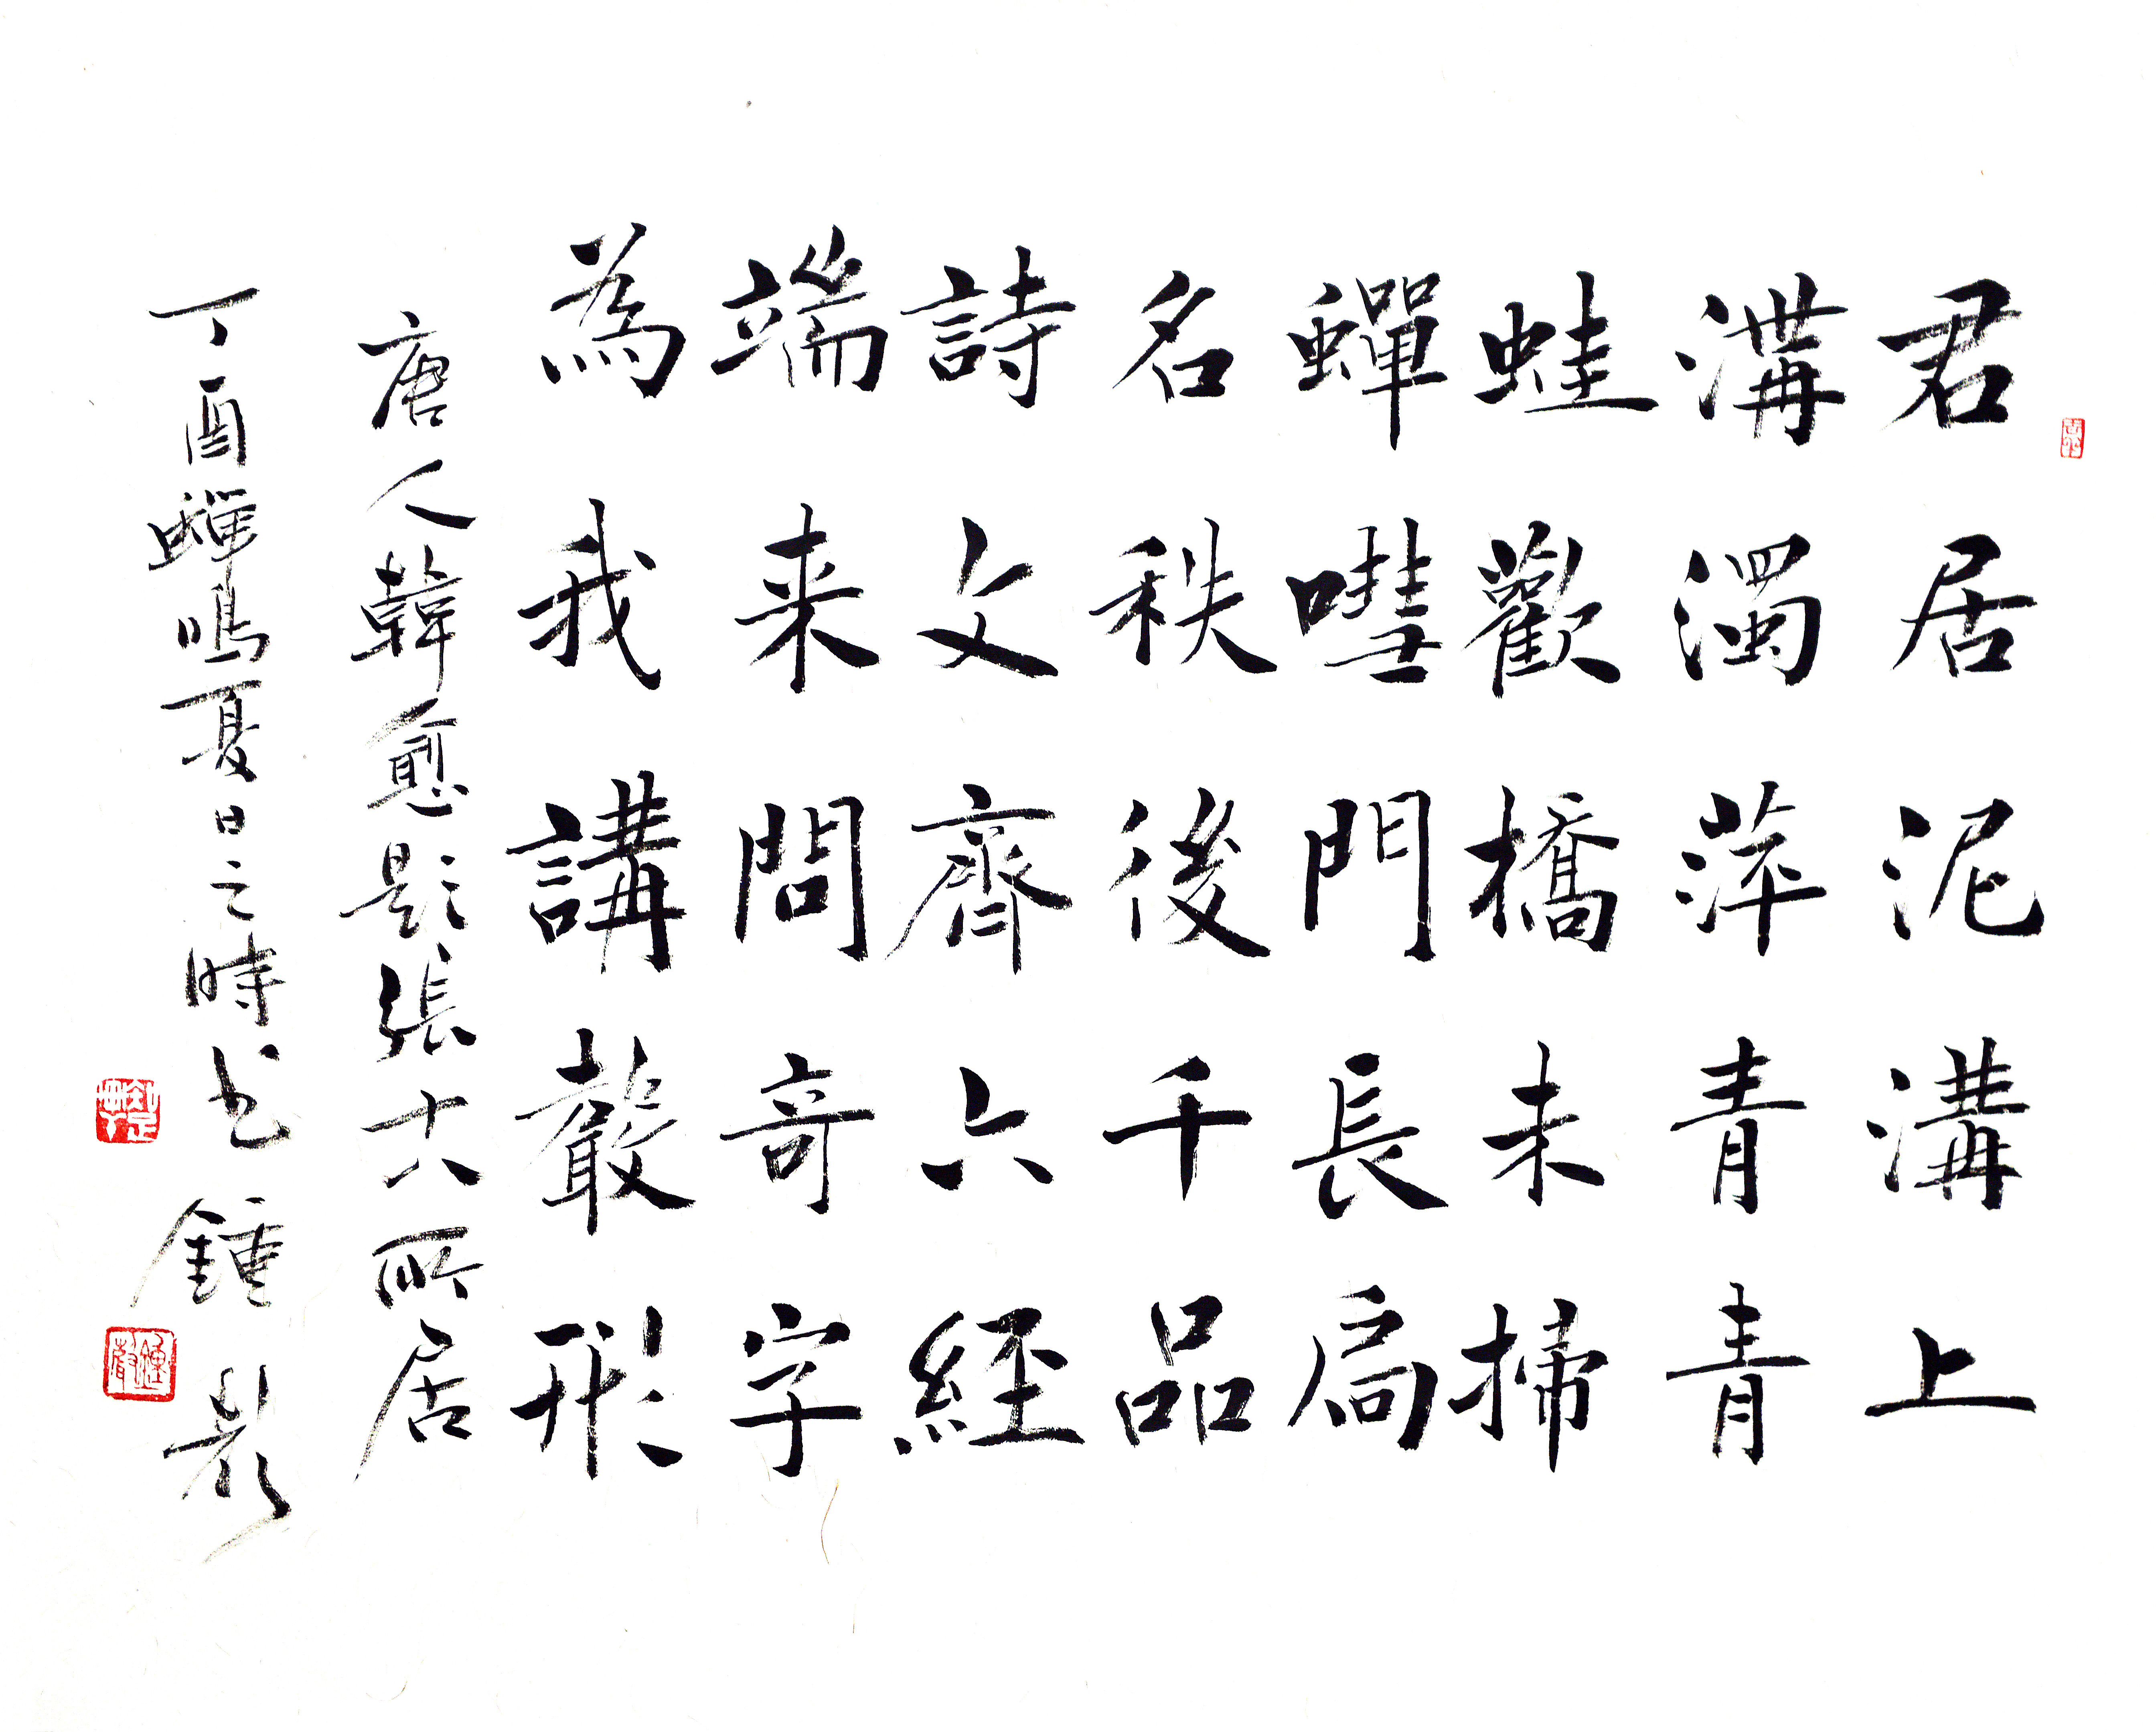 君居泥溝上
溝濁萍青青
蛙歡橋未掃
蟬嘒門長扃
名秩後千品
詩文齊六經
端来問奇字
為我講聲形
唐人韓愈題張十八所居
丁酉蟬鳴夏日之時书 鍾